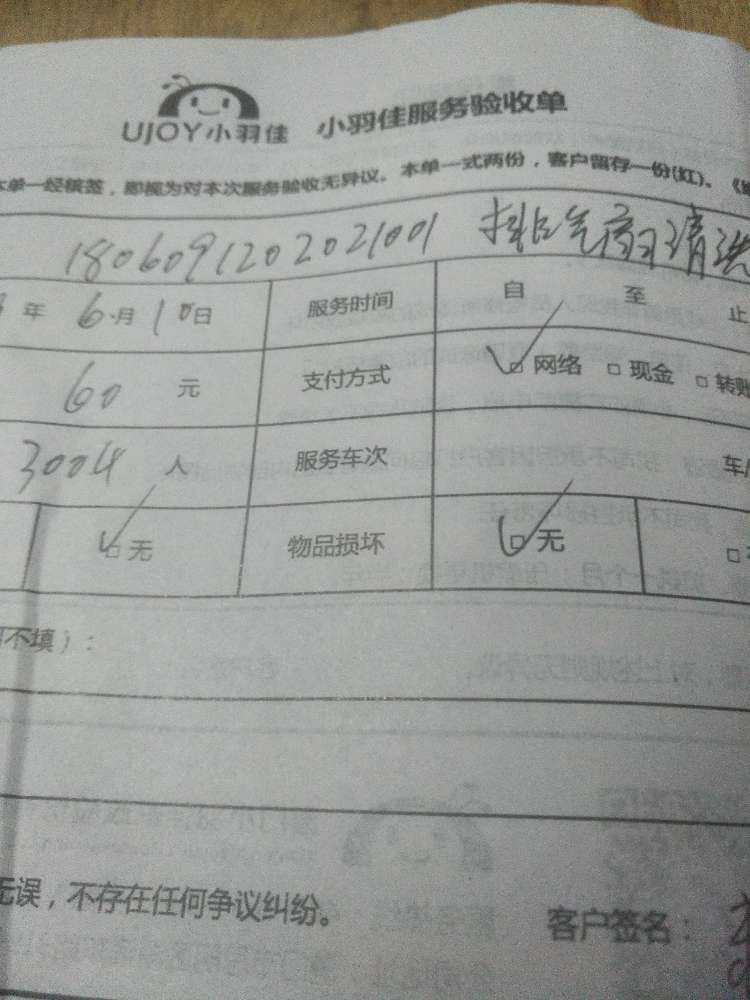 UJOY小羽佳 小羽佳服务验收单
本单一经核签，即视为对本次服务验收无异议。本单一式两份，客户留存一份(红)。
1806091202021001 抽油烟机清洗
年 6月10日 服务时间 自 至 止
60 元 支付方式 网络 现金 转账
3004 人 服务车次 车/
无 物品损坏 无
不填）：
无误，不存在任何争议纠纷。
客户签名：